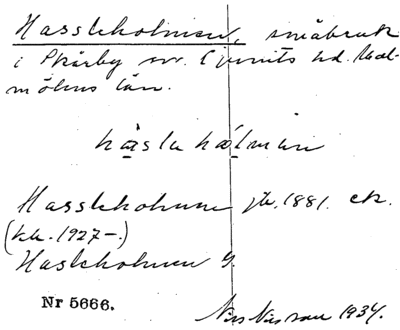 Hassleholmen, småbruk
i Skårby sn. Ljunits hd. Mal-
möhus län.
hasla hålmän
Hassleholmen jb. 1881. ek.
(kk. 1927-.)
Hasleholmen g.
Nr 5666.
Nils Nilsson 1934.